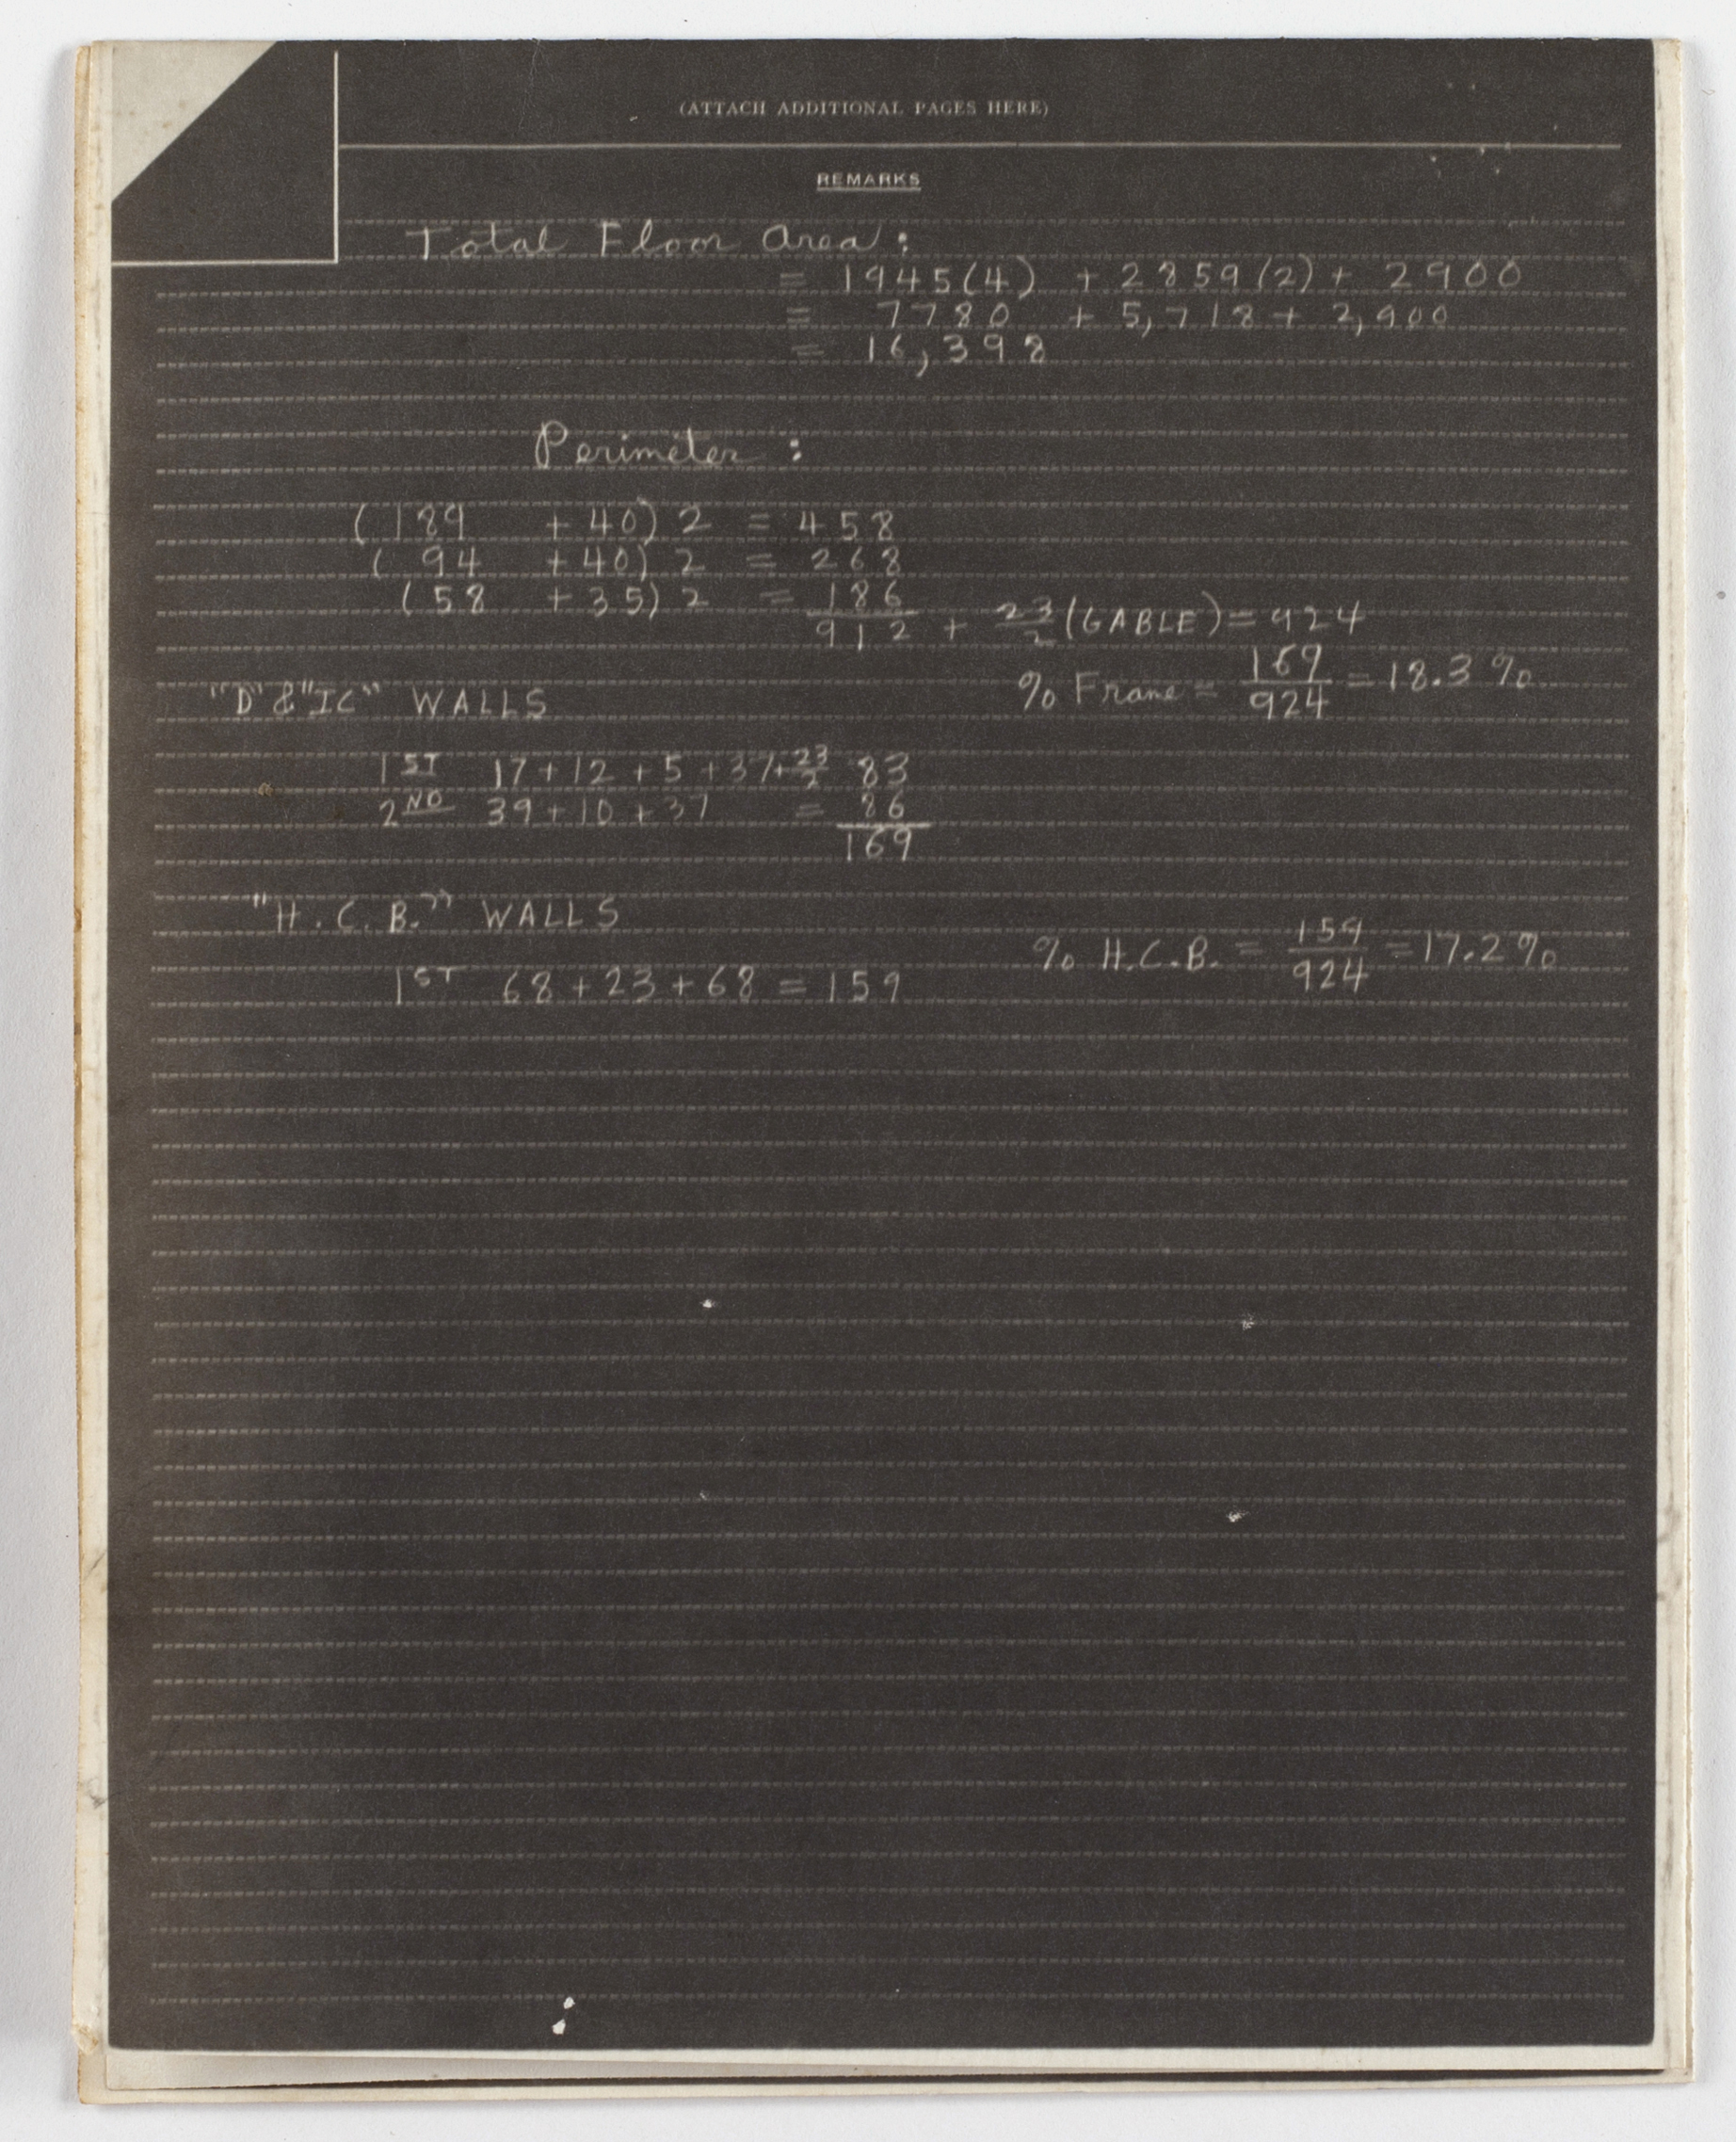 (ATTACH ADDITIONAL PAGES HERE)
REMARKS
Total Floor Area:
= 1945(4) + 2859(2) + 2900
= 7780 + 5,718 + 2,900
= 16,398
Perimeter:
(189 + 40) 2 = 458
(94 + 40) 2 = 268
(58 + 35) 2 = 186
912 + 23/2 (GABLE) = 924
% Frame = 169/924 = 18.3%
"D" & "IC" WALLS
1ST 17 + 12 + 5 + 37 + 23/2 83
2ND 39 + 10 + 37 = 86
169
"H.C.B." WALLS
% H.C.B. = 159/924 = 17.2%
1ST 68 + 23 + 68 = 159